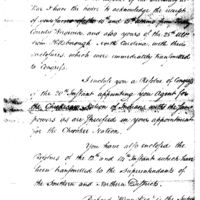 I have the honor to acknowledge the receipt
of your favors of the 10th and 25th
County Virginia and also yours of the 25th ulto.
from Hillsborough North Carolina with their
enclosures which were immediately transmitted
to Congress.
I inclose you a Resolve of Congress
of the 20th Instant appointing you agent for
the Chickasaw Nation of Indians with the same
powers as are specified in your appointment
for the Cherokee Nation.
You have also enclosed the
Resolves of the 12th and 14th Instant which have
been transmitted to the Superintendants of
the Southern and Northern Districts.
Richard